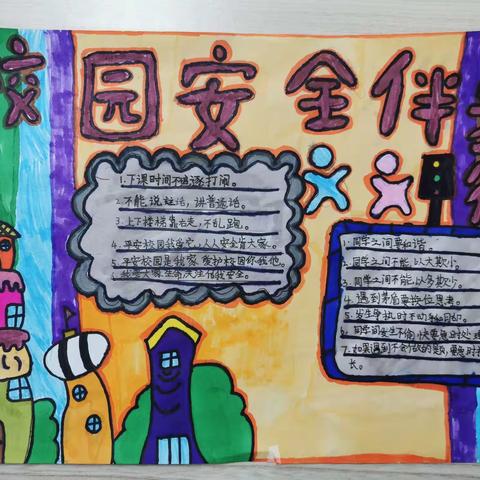 校园安全伴我行
1.下课时间不追逐打闹。
2.不能说脏话,讲普通话。
3.上下楼梯靠右走,不乱跑。
4.平安校园我争定,人人安全皆大家。
5.平安校园是我家 爱护校园你我他。
生命 关注 我安全。
1.同学之间要和谐。
2.同学之间不能以大欺小。
3.同学之间不能以多欺少。
4.遇到矛盾要换位思考。
5.发生争执时不动手和自卫。
6.同学间发生不愉快要及时处理
7.如果遇到不会做的题,要及时
长。